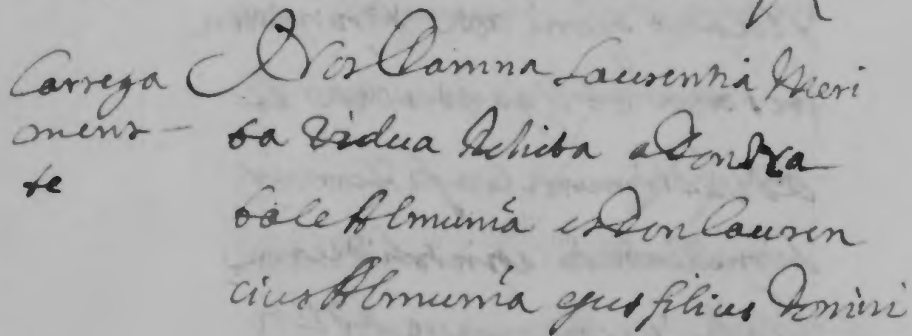 Carrega
ment
te
Nos Domna Laurentia Meri
ta vidua relicta a Don
Almunia et Don Lauren
cius Almunia ejus filius Domini